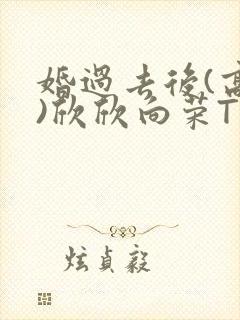 婚過去後(高
)欣欣向荣T
炫貞毅